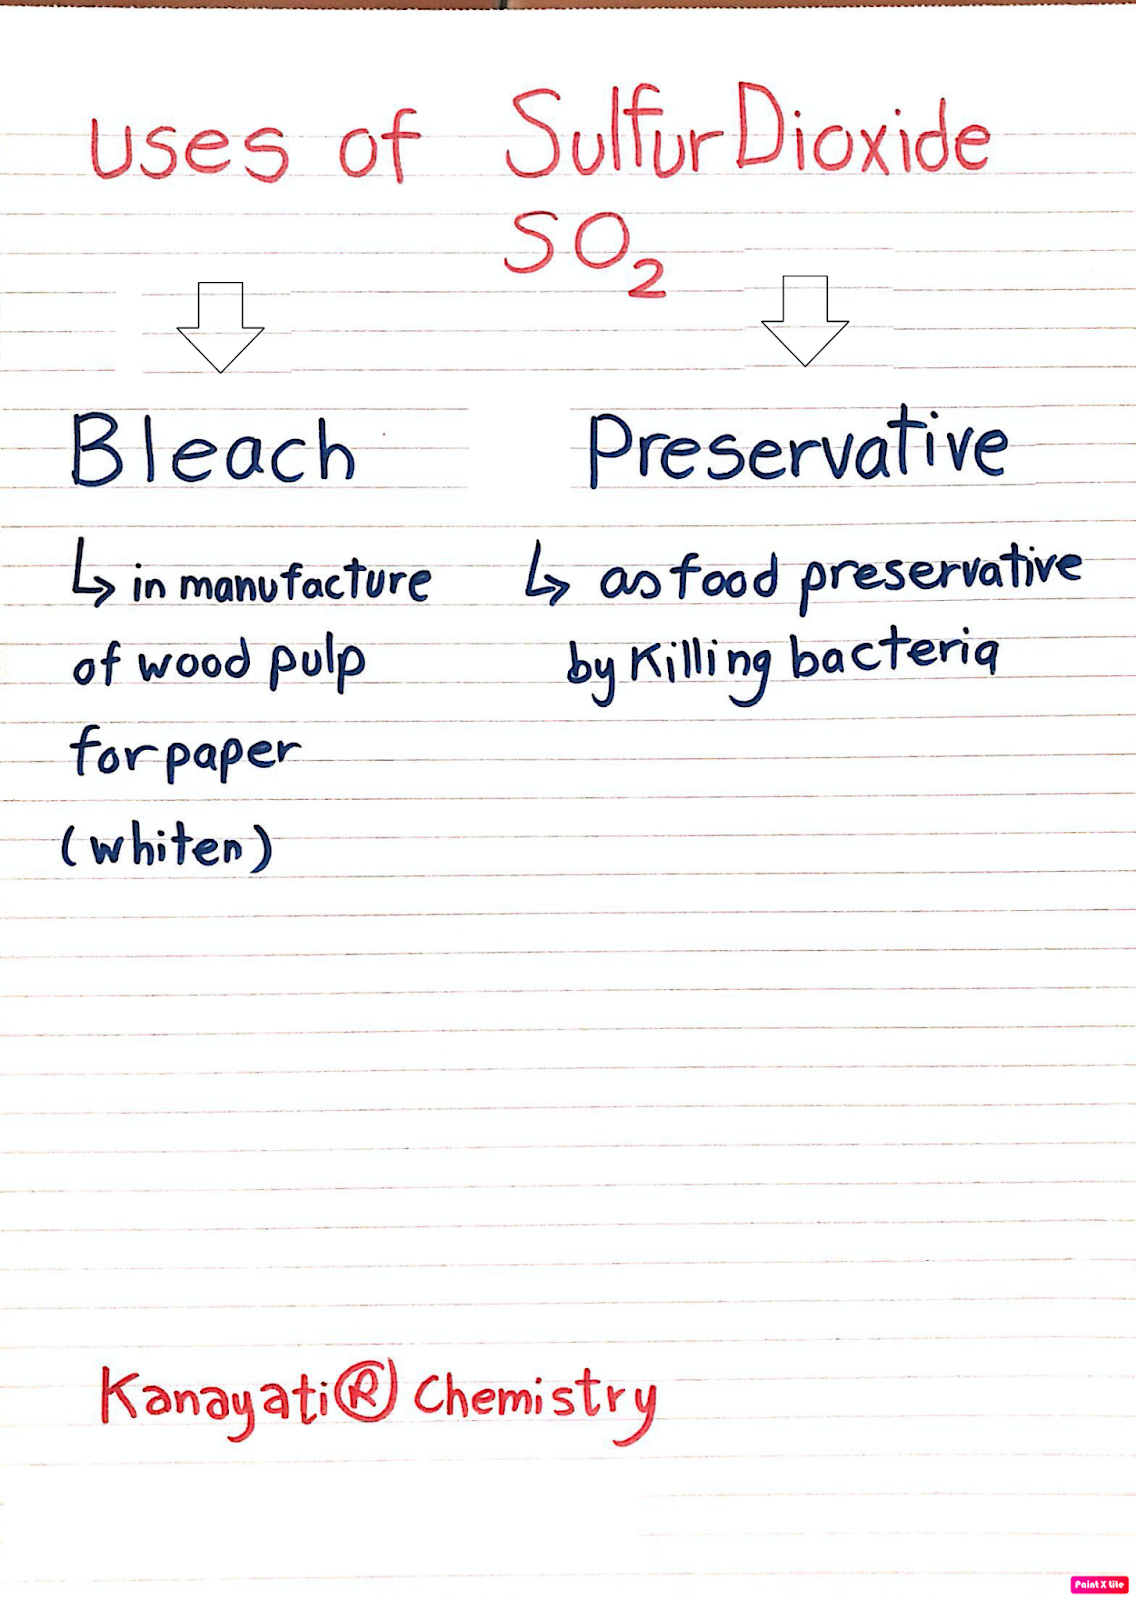 uses of Sulfur Dioxide
SO₂
Bleach
↳ in manufacture
of wood pulp
for paper
(whiten)
Preservative
↳ as food preservative
by Killing bacteria
Kanayati® Chemistry
Paint X Lite